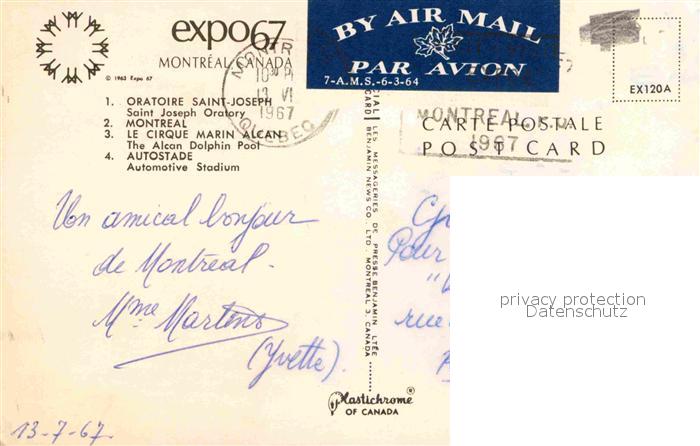 expo67
MONTRÉAL, CANADA
© 1963 Expo 67
BY AIR MAIL
PAR AVION
7-A.M.S.-6-3-64
EX120A
1967
QUEBEC
MONTREAL, P.Q.
1967
1. ORATOIRE SAINT-JOSEPH
Saint Joseph Oratory
2. MONTREAL
3. LE CIRQUE MARIN ALCAN
The Alcan Dolphin Pool
4. AUTOSTADE
Automotive Stadium
CARTE POSTALE
POST CARD
LES MESSAGERIES DE PRESSE BENJAMIN LTÉE
BENJAMIN NEWS CO. LTD. MONTREAL 3, CANADA
Un amical bonjour
de Montréal.
Mme Martens
(Yvette).
13-7-67
Pour
rue
privacy protection
Datenschutz
Plastichrome®
OF CANADA